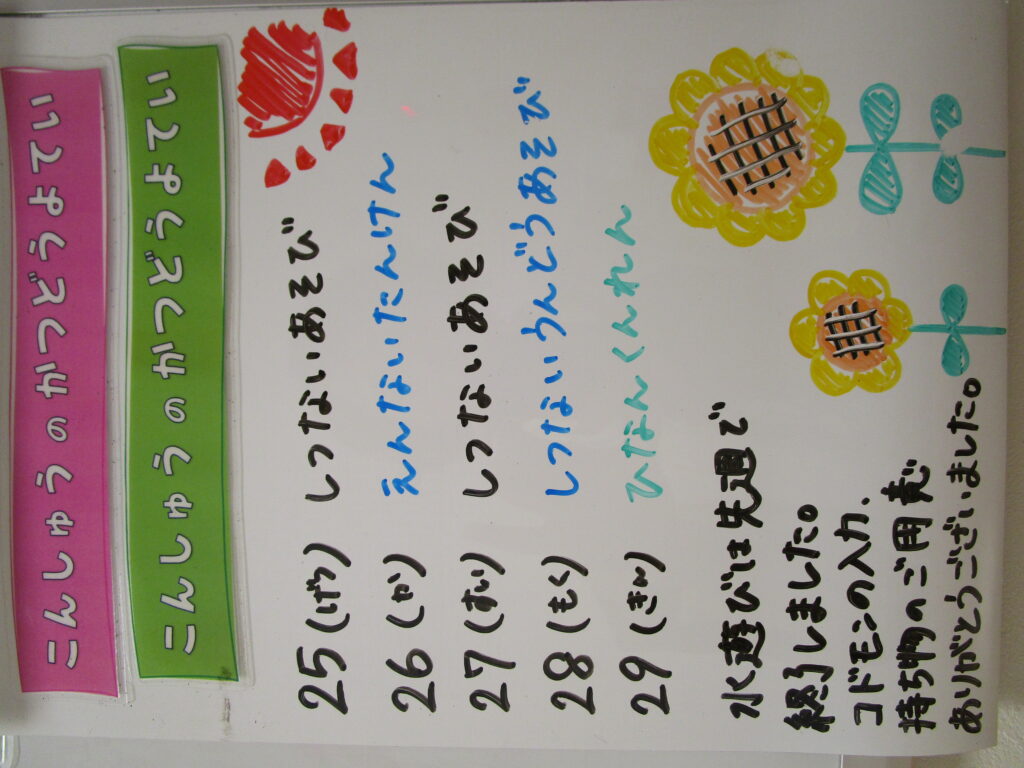 こんしゅうのかつどうよてい
こんしゅうのかつどうよてい
25(げつ) しつないあそび
26(か) えんないたんけん
27(すい) しつないあそび
28(もく) しつないうんどうあそび
29(きん) ひなんくんれん
水遊びは先週で
終了しました。
コドモンの入力、
持ち物のご用意
ありがとうございました。